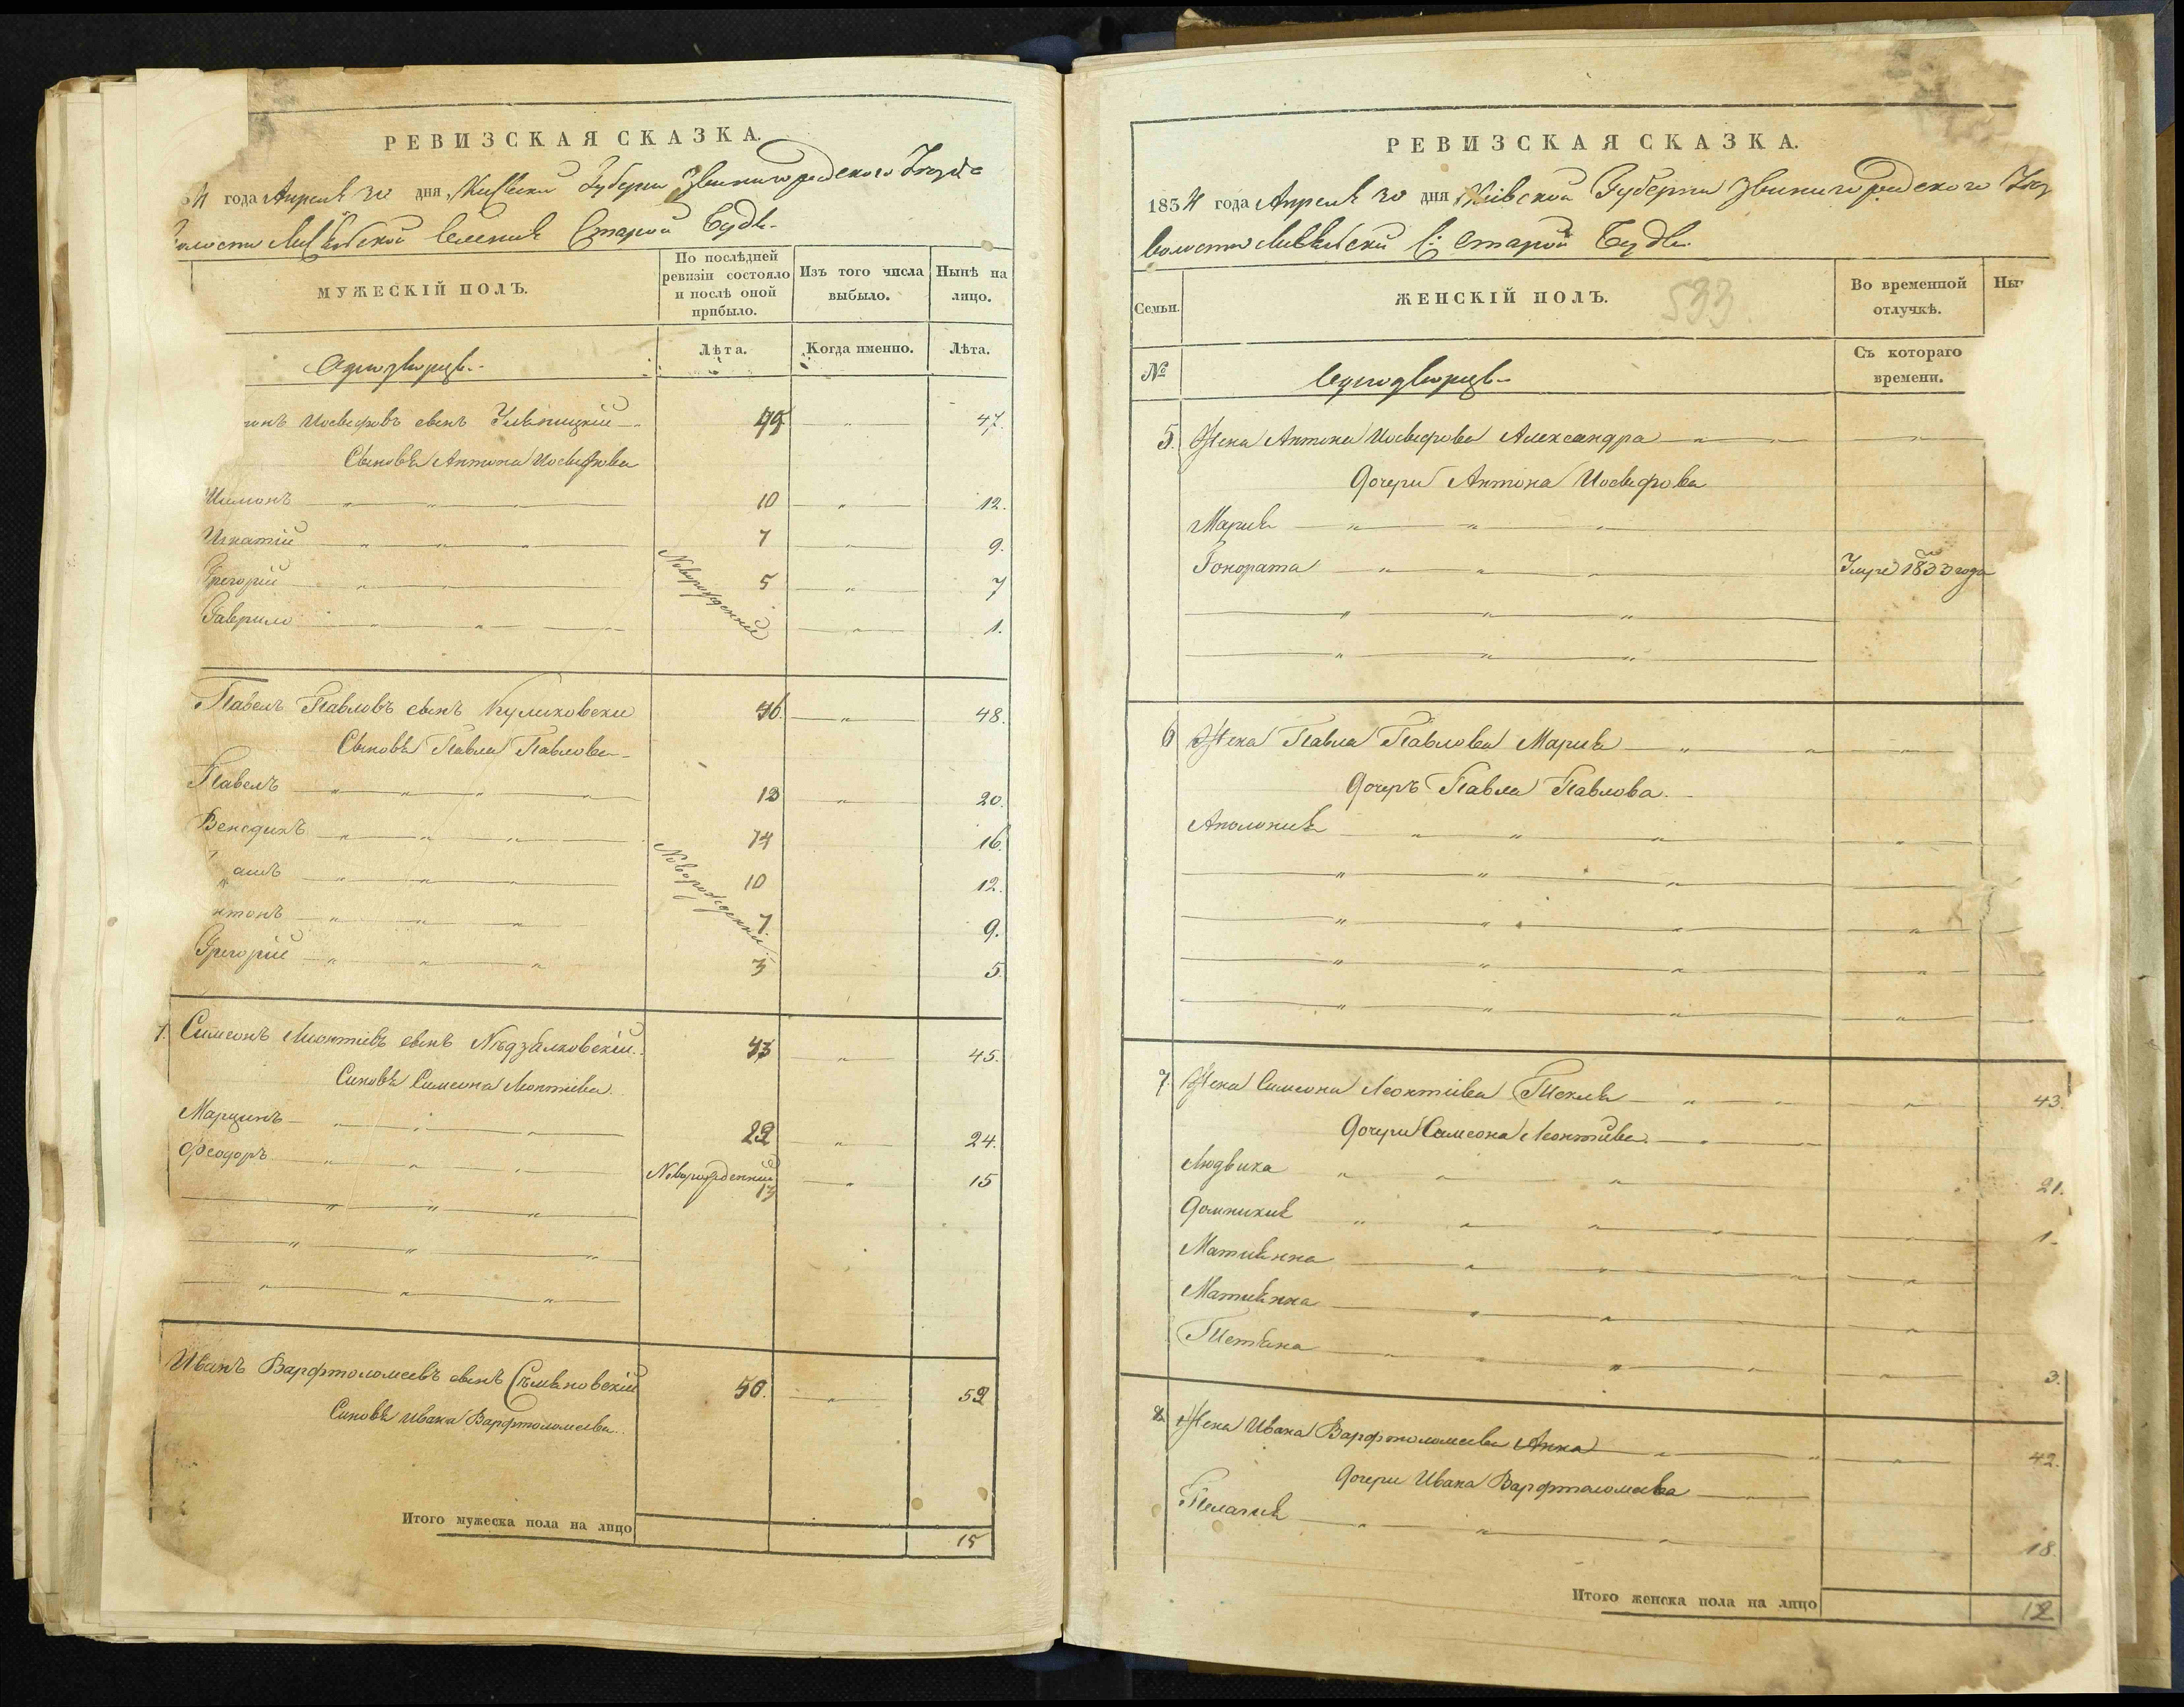 РЕВИЗСКАЯ СКАЗКА.
года Апреля 30 дня, Киевской Губернии Звенигородского Уезда
Волости селения Старой Буды
МУЖЕСКІЙ ПОЛЪ.
По послѣдней ревизіи состояло и послѣ оной прибыло.
Изъ того числа выбыло.
Нынѣ на лицо.
Однодворцы
Лѣта.
Когда именно.
Лѣта.
Иосифовъ сынъ 47.
Сыновья Антона Иосифова
Шимонъ 10 12.
Игнатій 7 9.
Григорій 5 7
Гаврило Новорожденный 1.
Павелъ Павловъ сынъ Куликовски 46. 48.
Сыновья Павла Павлова
Павелъ 18 20.
Венедиктъ 14 16.
10 12.
нтонъ 7 9.
Григорій Новорожденный 3 5.
7. Симеонъ Леонтіевъ сынъ Нѣдзалковскій 43 45.
Сыновья Симеона Леонтіева.
Марцинъ 22 24.
Феодоръ Новорожденный 13 15
Иванъ Варфтоломеевъ сынъ 50. 52
Сыновья Ивана Варфтоломеева.
Итого мужеска пола на лицо 15
РЕВИЗСКАЯ СКАЗКА.
1834 года Апреля 30 дня Кіевской Губерніи Звенигородского Уез
Волости С: Старой Буды
Семьи.
ЖЕНСКІЙ ПОЛЪ.
533
Во временной отлучкѣ.
Ны
№
Однодворцы
Съ котораго времени.
5. Жена Антона Иосифова Александра
Дочери Антона Иосифова
Марія
Гонората Умре 1833 года
6 Жена Павла Павлова Марія
Дочеръ Павла Павлова.
Аполонія
7. Жена Симеона Леонтіева Текля 43.
Дочери Симеона Леонтіева
Людвика 21.
Домникія 1
Матіянна
Матіянна
Тетіана 3.
8. Жена Ивана Варфтоломеева Анна 42.
Дочери Ивана Варфтоломеева
Пелагія 18.
Итого женска пола на лицо 12